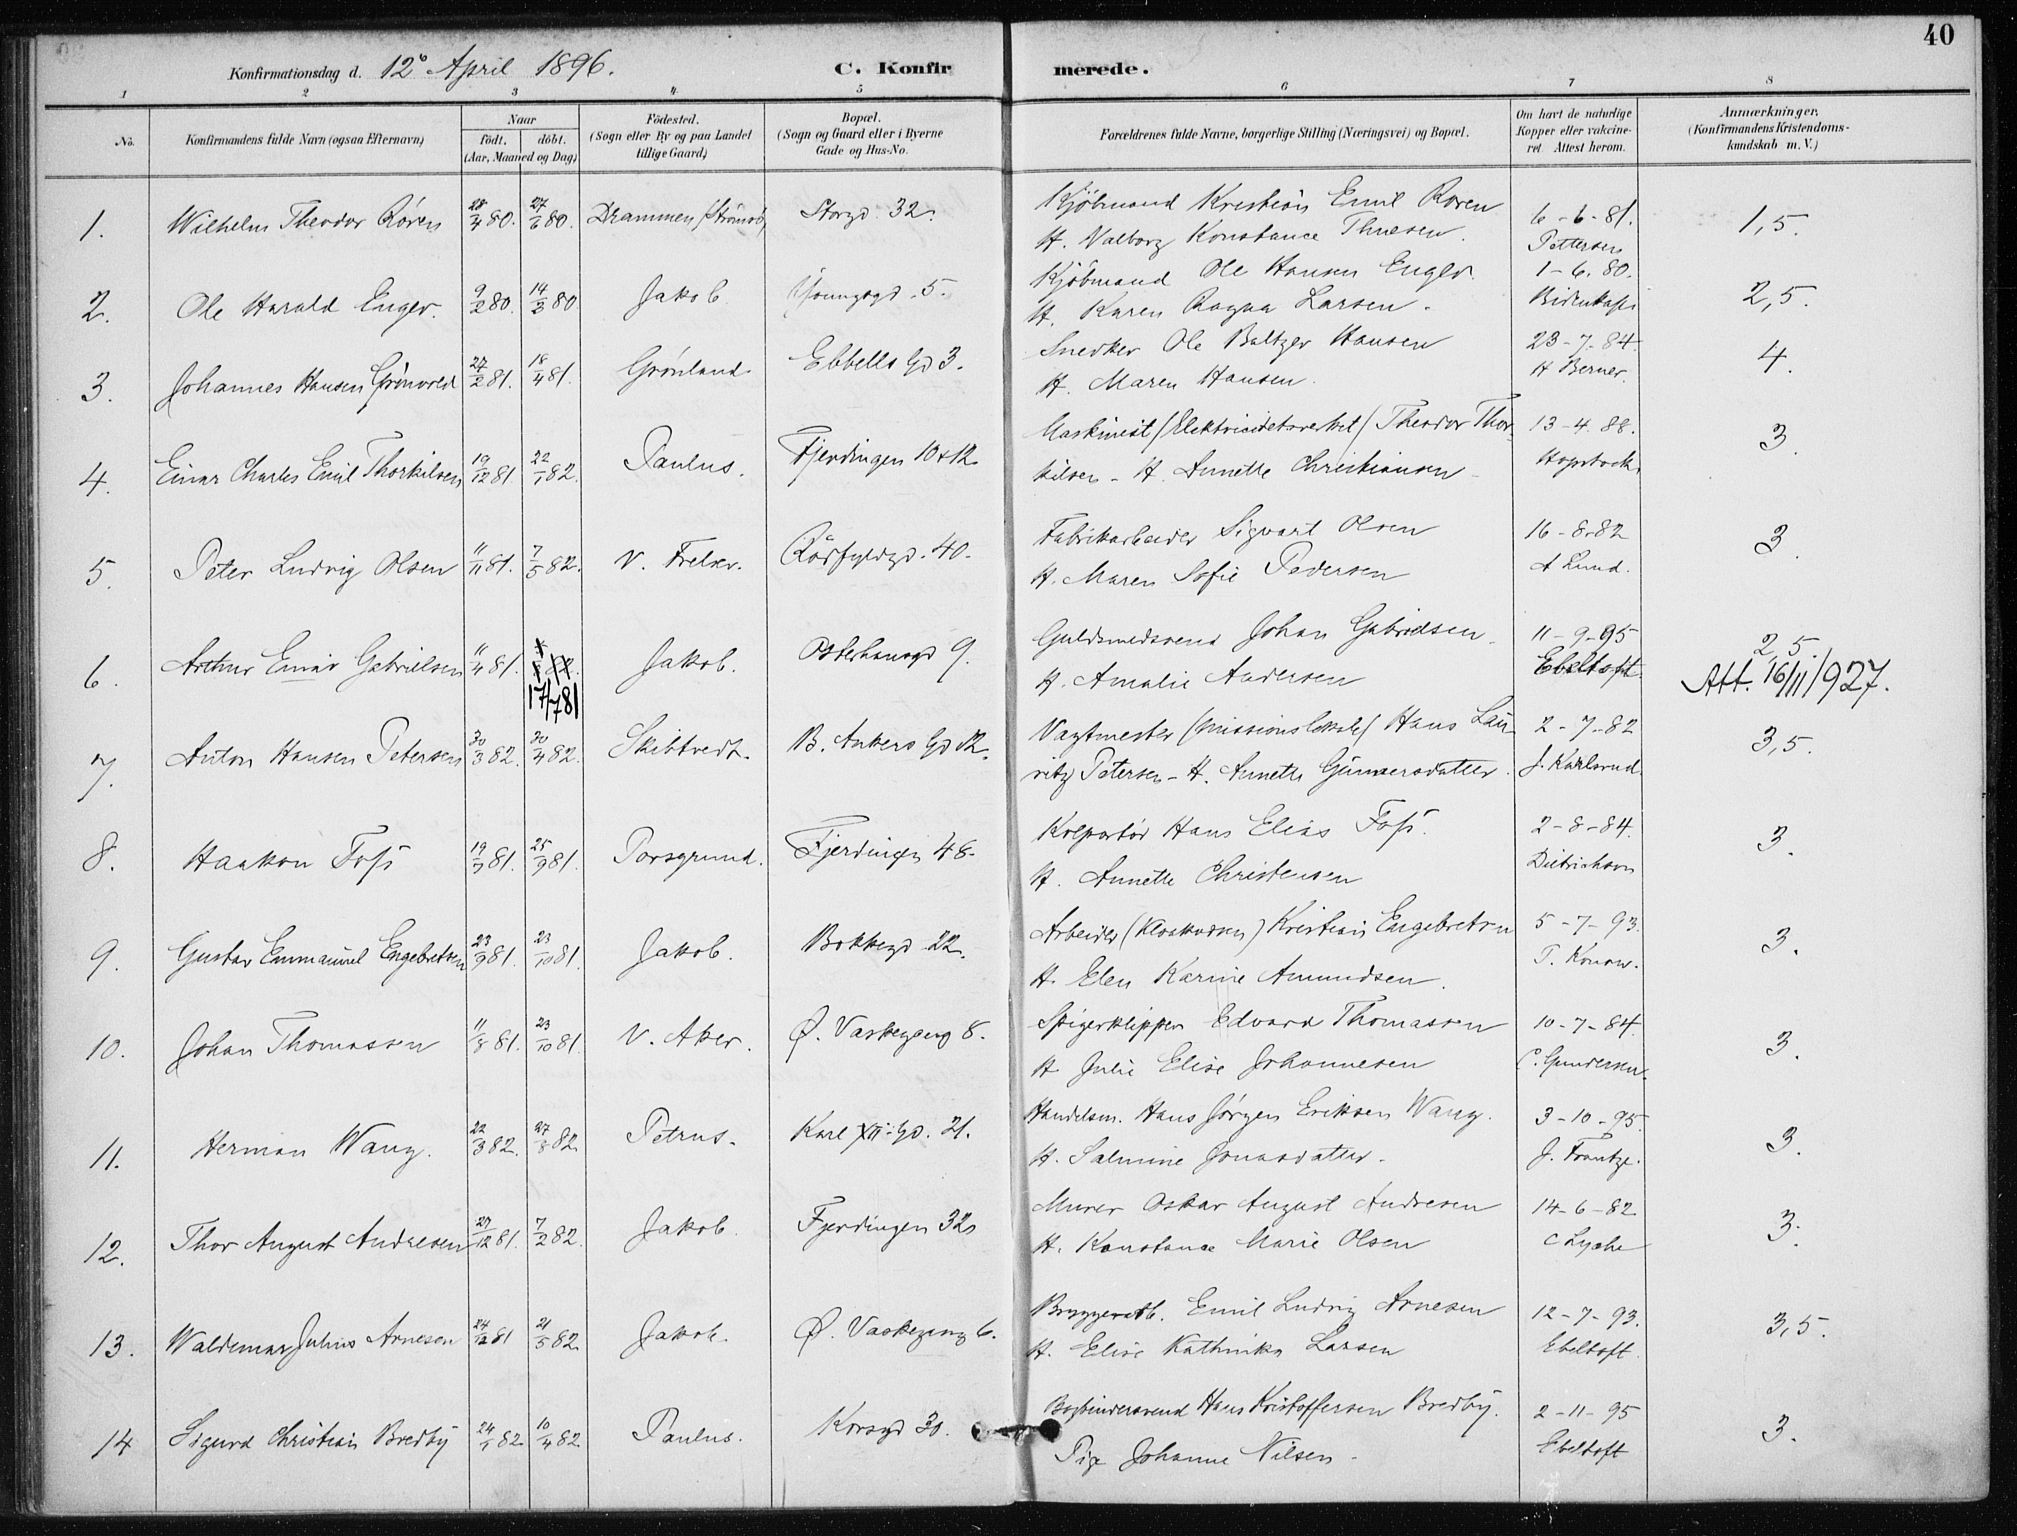 40
Konfirmationsdag d. 12te April 1896. C. Konfirmerede.
1 2 3 4 5 6 7 8
No. Konfirmandens fulde Navn (ogsaa Efternavn) Naar födt. döbt. (Aar, Maaned og Dag) Födested. (Sogn eller By og paa Landet tillige Gaard) Bopæl. (Sogn og Gaard eller i Byerne Gade og Hus-No. Forældrenes fulde Navne, borgerlige Stilling (Næringsvei) og Bopæl. Om havt de naturlige Kopper eller vakcineret Attest herom. Anmærkninger. (Konfirmandens Kristendomskundskab m. V.)
1. Wilhelm Theodor Roren 28/4 80. 27/6 80. Drammen (Strömsö) Storgd. 32. Kjöbmand Kristian Emil Roren 6-6-81. 1,5.
H. Valborg Konstance Thuesen. Pettersen
2. Ole Harald Enger. 9/2 80. 14/3 80 Jakob. Youngsgd. 5. Kjöbmand Ole Hansen Enger 1-6.80. 2,5.
H. Karen Ragna Larsen. Bidenkap
3. Johannes Hansen Grönvold 27/2 81. 18/4 81. Grönland. Ebbells Gd 3. Snedker Ole Baltzer Hansen 23-7-84. 4.
H. Maren Hansen. H Berner.
4. Einar Charles Emil Thorkilsen 19/12 81. 22/1 82. Paulus. Fjerdingen 10 & 12. Maskinist (Elektricitetsverket) Theodor Thor- 13-4.88. 3.
kilsen - H. Annette Christiansen - Hopstock
5. Peter Ludvig Olsen 11/11 81. 7/5 82. V. Frelser. Rödfyldgd. 40. Fabrikarbeider Sigvart Olsen 16-8-82 3.
H. Maren Sofie Pedersen A Lund.
6. Arthur Einar Gabrielsen 11/4 81. 17/7 81 Jakob. Osterhausgd 9. Guldsmedsvend Johan Gabrielsen 11-9-95 2,5.
H. Amalie Andersen Ebeltoft. Att. 16/11/927.
7. Anton Hansen Petersen 30/3 82. 30/4 82. Skibtvedt. B. Ankers Gd 12. Vagtmester (Missionslokale) Hans Lau- 2-7-82 3,5.
ritz Petersen - H. Annette Gunnersdatter. J. Karlsrud.
8. Haakon Foss 19/7 81. 25/9 81. Porsgrund. Fjerdingen 48. Kolportör Hans Elias Foss. 2-8-84. 3.
H. Annette Christensen Dietrichson
9. Gustav Emmanuel Engebretsen 23/9 81. 23/10 81. Jakob. Bokkegd 22. Arbeider (Kloakvæsen) Kristian Engebretsen 5-7-93. 3.
H. Elen Karine Amundsen. T. Konow.
10. Johan Thomassen 11/8 81. 23/10 81. V. Aker. Ø. Vaskegang 8. Spigerklipper Edvard Thomassen 10-7-84. 3.
H Julie Elise Johannesen C. Gundersen.
11. Herman Wang. 22/3 82. 27/8 82 Petrus. Karl XII Gd. 21. Handelsm. Hans Jörgen Eriksen Wang. 3-10-95. 3.
H. Salmine Jonasdatter. J. Frantze.
12. Thor August Andresen 27/12 81. 7/2 82. Jakob. Fjerdingen 32 Murer Oskar August Andresen 14-6-82 3.
H. Konstance Marie Olsen C Lyche
13. Waldemar Julius Arnesen 24/12 81 21/5 82. Jakob. Ø. Vaskegang 6. Bryggerarb. Emil Ludvig Arnesen 12-7-93. 3,5.
H. Elise Kathinka Larsen Ebeltoft.
14 Sigurd Christian Bredby 24/1 82. 10/4 82. Paulus. Korsgd 30. Bogbindersvend Hans Kristoffersen Bredby. 2-11-95 3.
Pige Johanne Nilsen. Ebeltoft